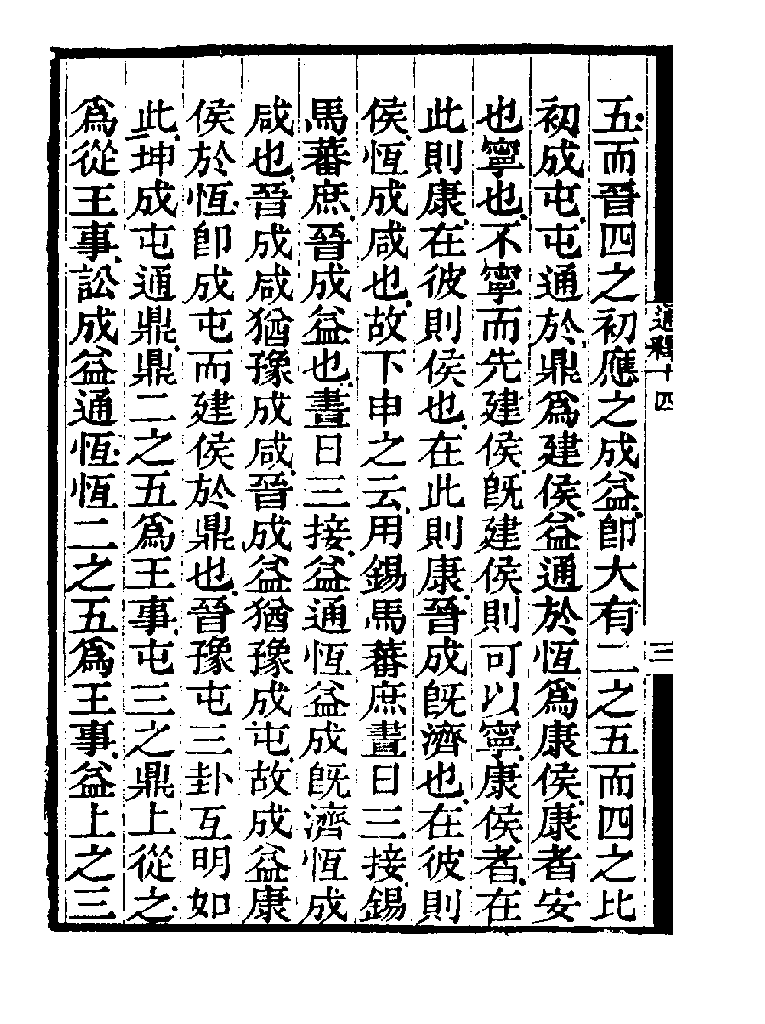 五而晉四之初應之成益卽大有二之五而四之比
初成屯屯通於鼎爲建侯益通於恆爲康侯康者安
也寧也不寧而先建侯旣建侯則可以寧康侯者在
此則康在彼則侯也在此則康晉成旣濟也在彼則
侯恆成咸也故下申之云用錫馬蕃庶晝日三接錫
馬蕃庶晉成益也晝日三接益通恆益成旣濟恆成
咸也晉成咸猶豫成咸晉成益猶豫成屯故成益康
侯於恆卽成屯而建侯於鼎也晉豫屯三卦互明如
此坤成屯通鼎鼎二之五爲王事屯三之鼎上從之
爲從王事訟成益通恆恆二之五爲王事益上之三
通釋十四
三